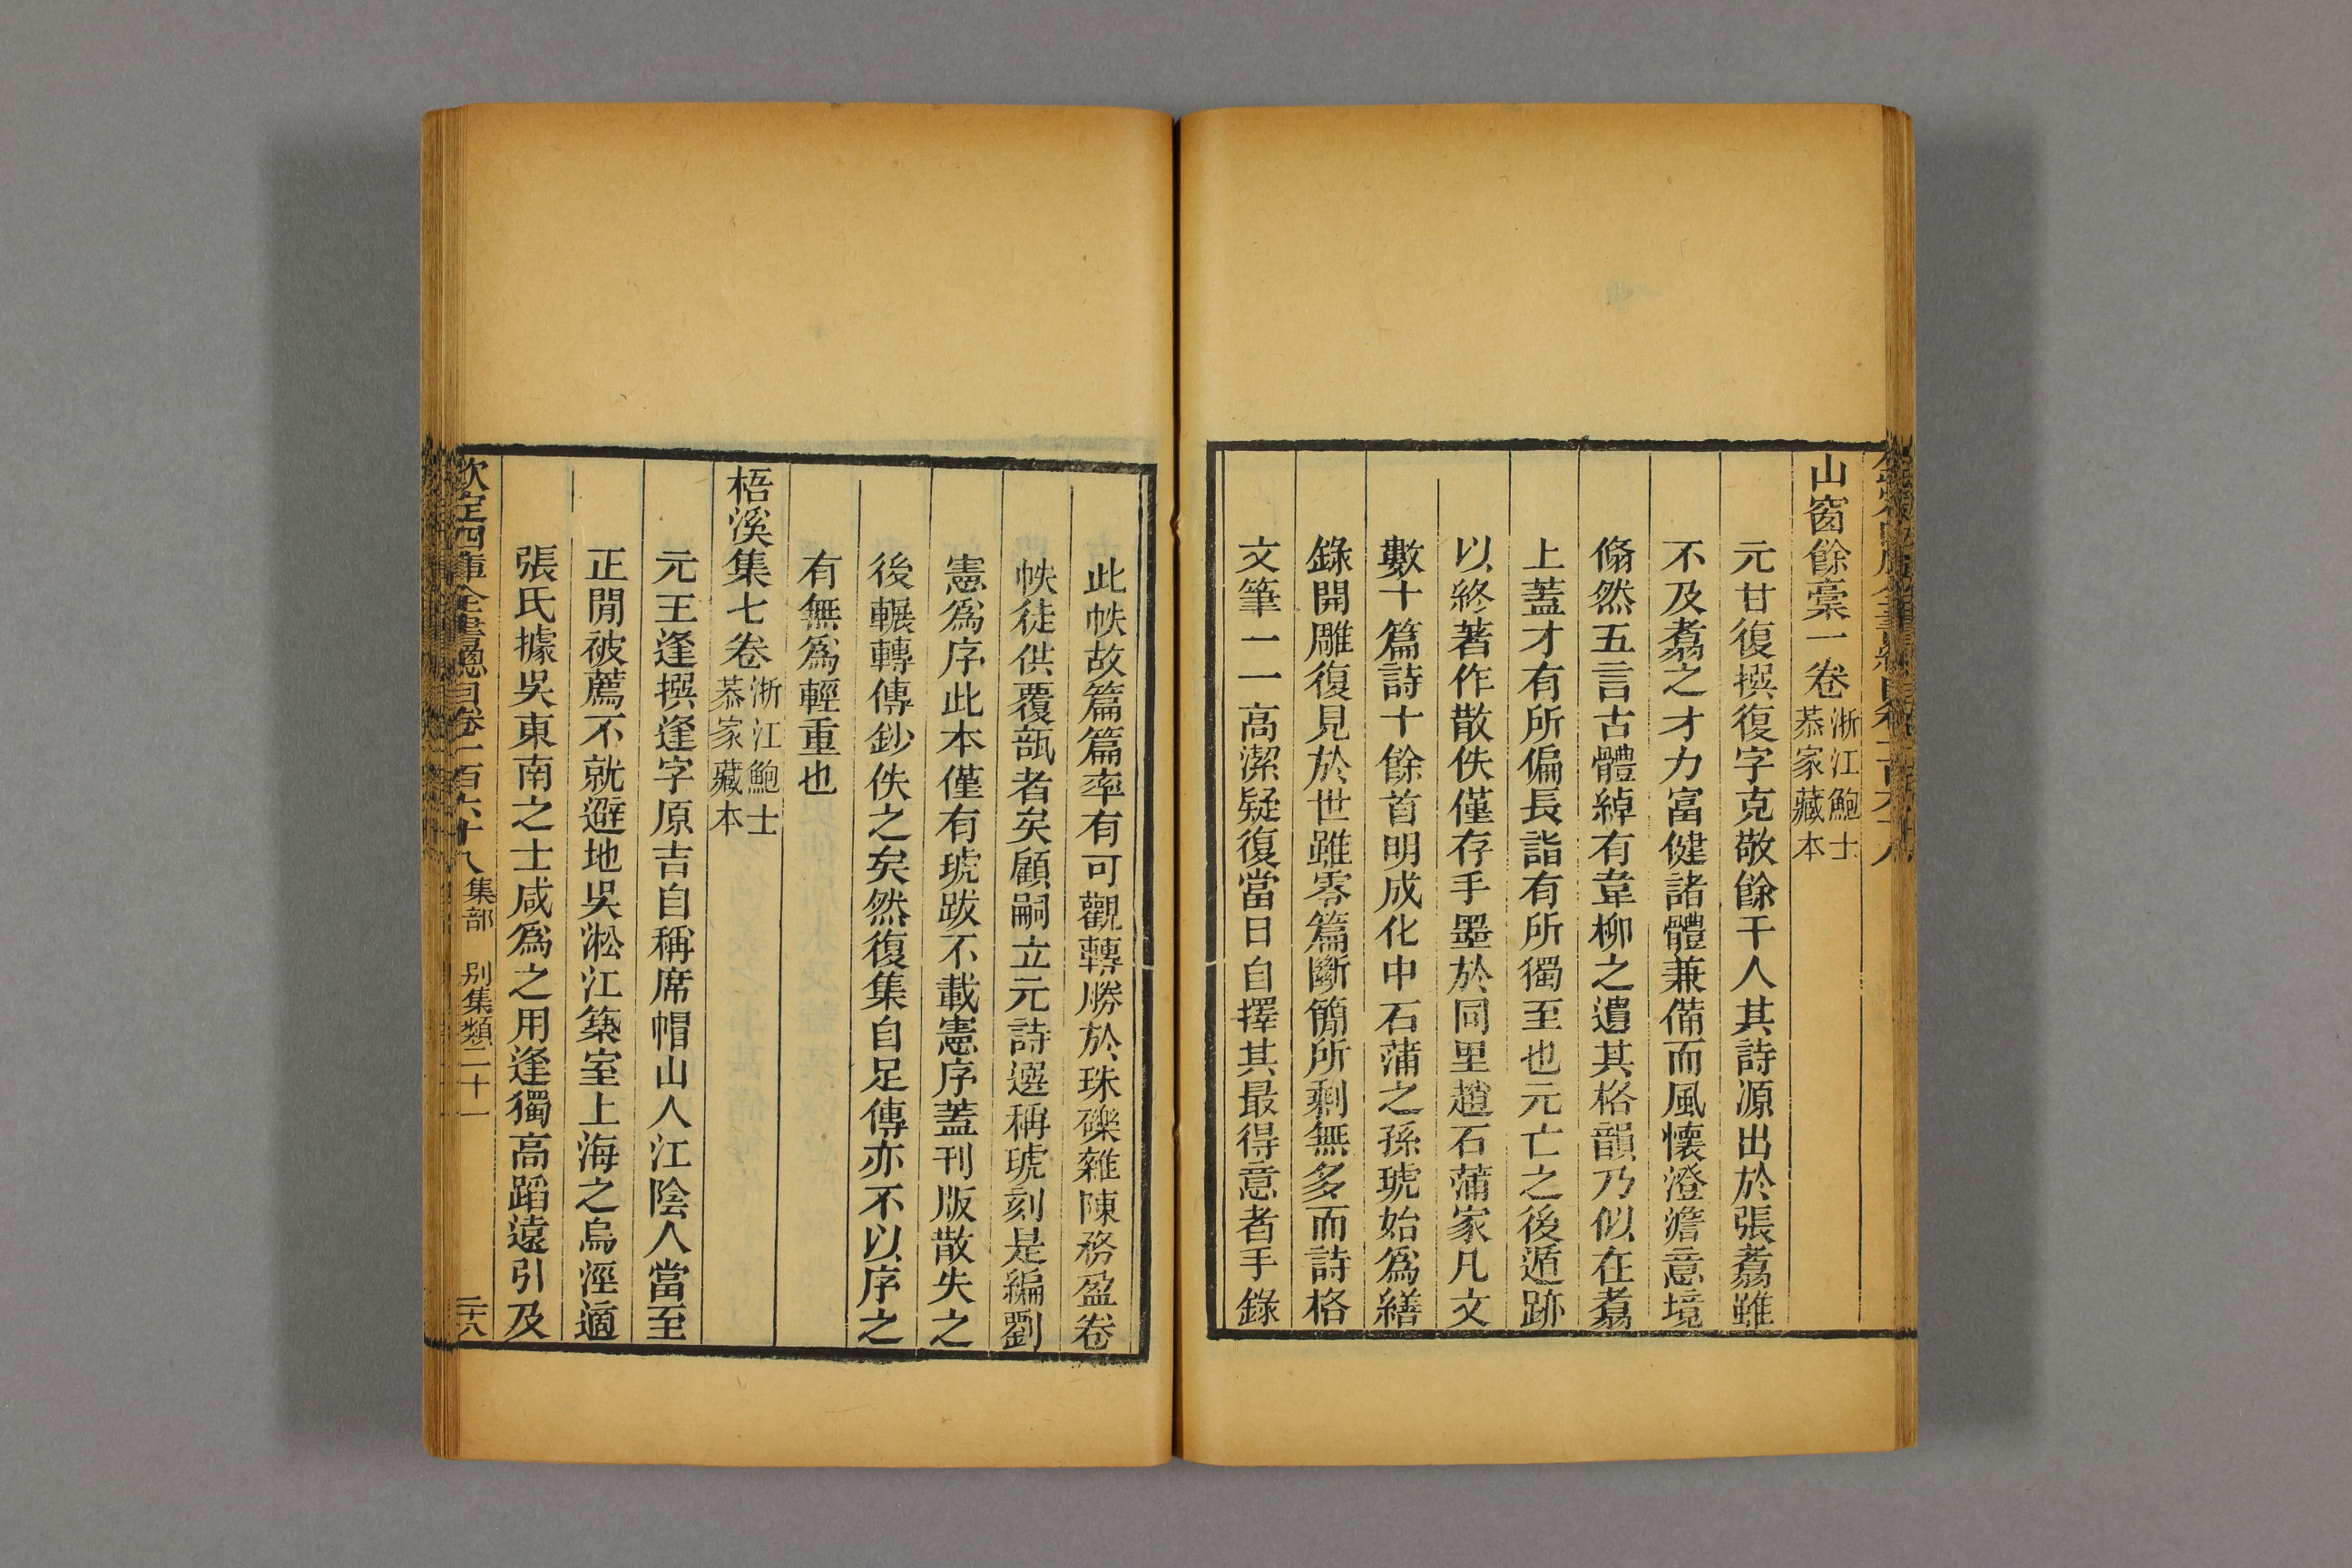 山窗餘稾一卷浙江鮑士恭家藏本
元甘復撰復字克敬餘干人其詩源出於張翥雖
不及翥之才力富健諸體兼備而風懷澄澹意境
翛然五言古體綽有韋柳之遺其格韻乃似在翥
上蓋才有所偏長詣有所獨至也元亡之後遁跡
以終著作散佚僅存手墨於同里趙石蒲家凡文
數十篇詩十餘首明成化中石蒲之孫琥始爲繕
錄開雕復見於世雖零篇斷簡所剩無多而詩格
文筆一一高潔疑復當日自擇其最得意者手錄
此帙故篇篇率有可觀轉勝於珠礫雜陳務盈卷
帙徒供覆瓿者矣顧嗣立元詩選稱琥刻是編劉
憲爲序此本僅有琥跋不載憲序蓋刊版散失之
後輾轉傳鈔佚之矣然復集自足傳亦不以序之
有無爲輕重也
梧溪集七卷浙江鮑士恭家藏本
元王逢撰逢字原吉自稱席帽山人江陰人當至
正閒被薦不就避地吳淞江築室上海之烏涇適
張氏據吳東南之士咸爲之用逢獨高蹈遠引及
欽定四庫全書總目卷一百六十八 集部 別集類二十一 二十八